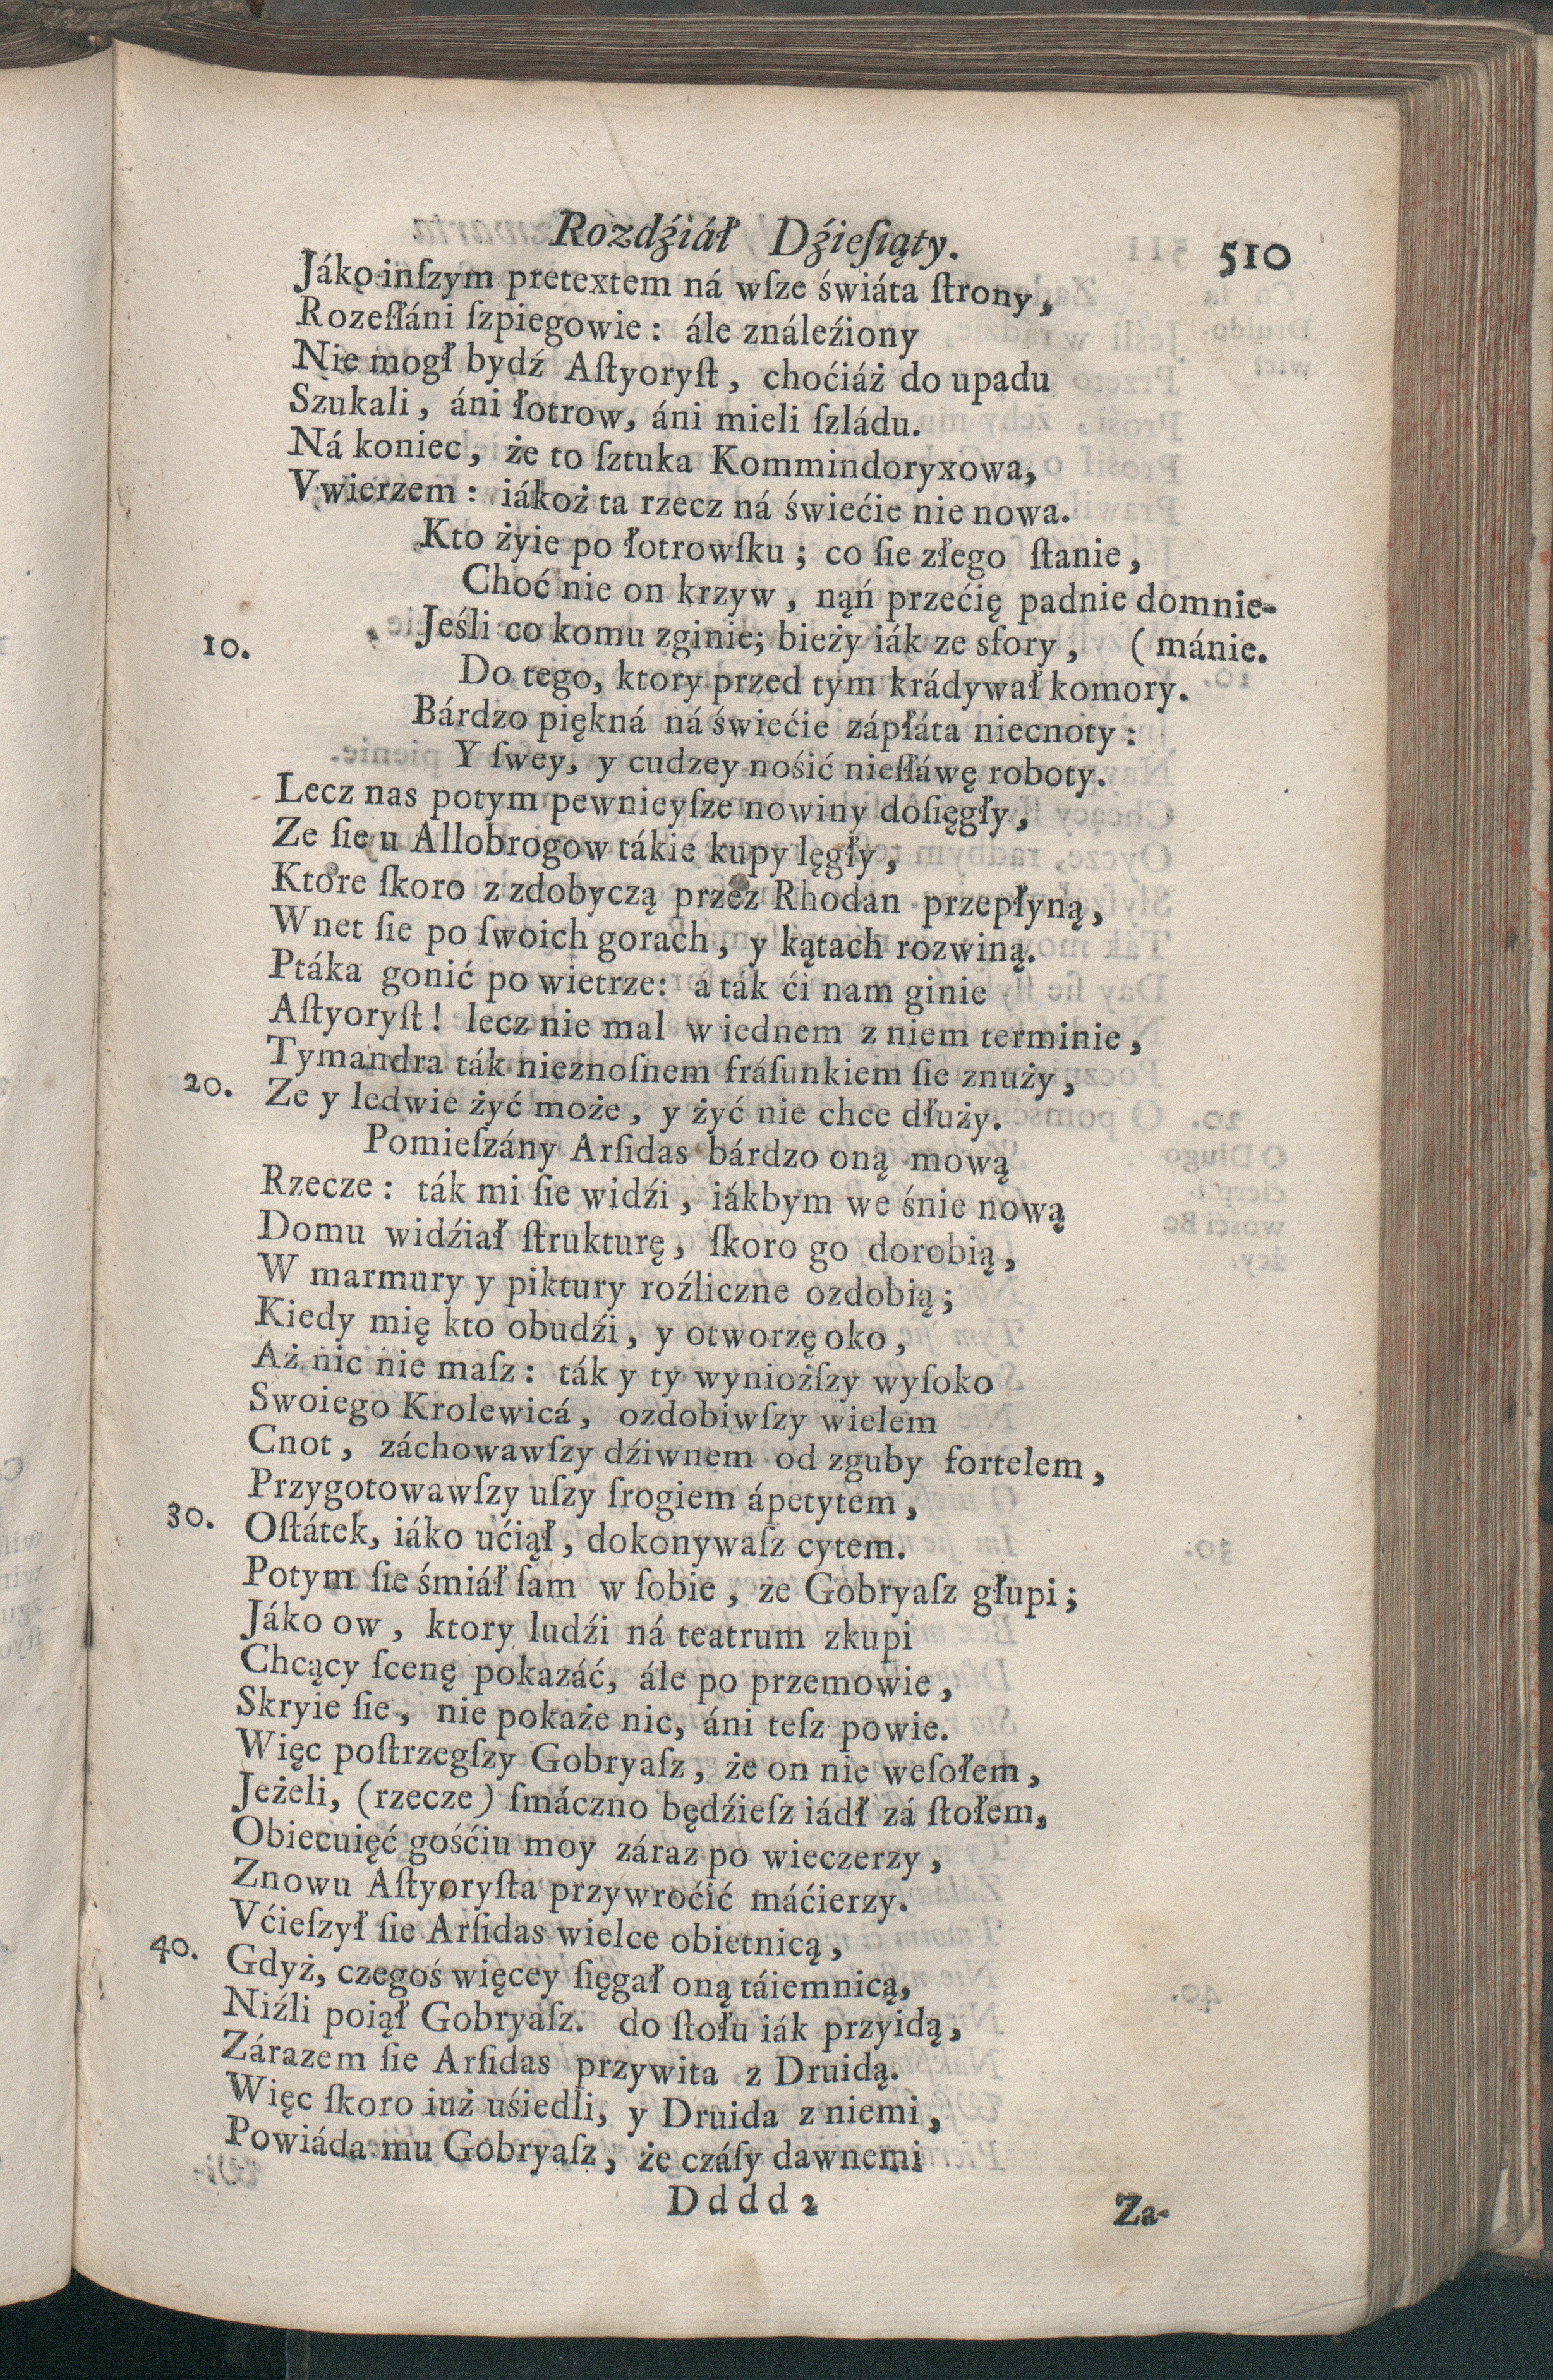 Rozdźiáł Dźieſiąty. 510
Jáko inſzym pretextem ná wſze świáta ſtrony,
Rozeſłáni ſzpiegowie: áleználeźiony
Nie mogł bydź Aſtyoryſt, choćiáż do upadu
Szukali, áni łotrow, áni mieli ſzládu.
Ná koniec, że to ſztuka Kommindoryxowa,
Vwierzem: iákoż ta rzecz ná świećie nie nowa.
Kto żyie po łotrowſku; co ſie złego ſtanie,
Choć nie on krzyw, náń przećię padnie domnie-
10. Jeśli co komu zginie; bieży iák ze sfory, (mánie.
Do tego, ktory przed tym krádywał komory.
Bárdzo piękná ná świećie zápłáta niecnoty:
Y ſwey, y cudzey nośić nieſłáwę roboty.
Lecz nas potym pewnieyſze nowiny doſięgły,
Ze ſie u Allobrogow tákie kupy lęgły,
Ktore ſkoro z zdobyczą przez Rhodan przepłyną,
Wnet ſie po ſwoich gorach, y kątach rozwiną.
Ptáka gonić po wietrze: á ták ći nam ginie
Aſtyoryſt! lecz nie mal w iednem z niem terminie,
Tymandra ták nieznoſnem fráſunkiem ſie znuży,
20. Ze y ledwie żyć może, y żyć nie chce dłuży.
Pomieſzány Arſidas bárdzo oną mową
Rzecze: ták mi ſie widźi, iákbym we śnie nową
Domu widźiał ſtrukturę, ſkoro go dorobią,
W marmury y piktury roźliczne ozdobią;
Kiedy mię kto obudźi, y otworzę oko,
Aż nic nie maſz: ták y ty wynioższy wyſoko
Swoiego Krolewicá, ozdobiwſzy wielem
Cnot, záchowawſzy dźiwnem od zguby fortelem,
Przygotowawſzy uſzy ſrogiem ápetytem,
30. Oſtátek, iáko ućiął, dokonywaſz cytem.
Potym ſie śmiáł ſam w ſobie, że Gobryaſz głupi;
Jáko ow, ktory ludźi ná teatrum zkupi
Chcący ſcenę pokazáć, ále po przemowie,
Skryie ſie, nie pokaże nic, áni teſz powie.
Więc poſtrzegſzy Gobryaſz, że on nie weſołem,
Jeżeli, (rzecze) ſmáczno będźieſz iádł zá ſtołem,
Obiecuięć gośćiu moy záraz po wieczerzy,
Znowu Aſtyoryſta przywroćić máćierzy.
Vćieſzył ſie Arſidas wielce obietnicą,
40. Gdyż, czegoś więcey ſięgał oną táiemnicą,
Niźli poiął Gobryaſz. do ſtołu iák przyidą,
Zárazem ſie Arſidas przywita z Druidą.
Więc ſkoro iuż uśiedli, y Druida z niemi,
Powiáda mu Gobryaſz, że czáſy dawnemi
Dddd2 Za-